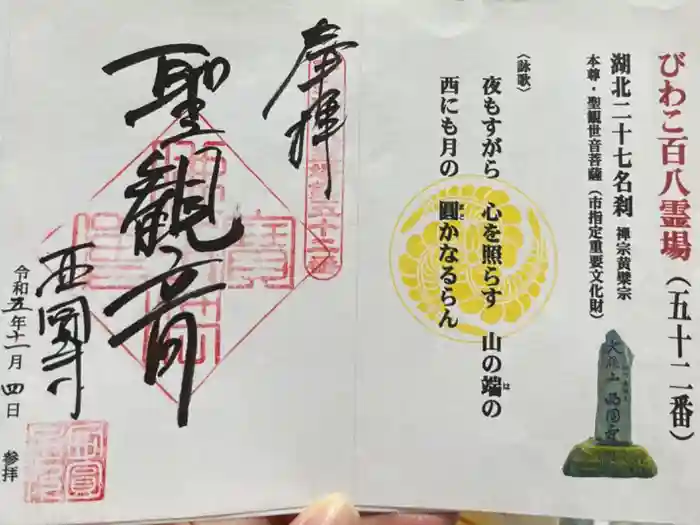 びわこ百八霊場(五十二番)
湖北二十七名刹 禅宗黄檗宗
本尊・聖観世音菩薩(市指定重要文化財)
大雄山 西圓寺
〈詠歌〉
夜もすがら 心を照らす 山の端の
は
西にも月の 圓かなるらん
まど
奉拝
聖観音
西圓寺
令和五年十一月四日 参拝